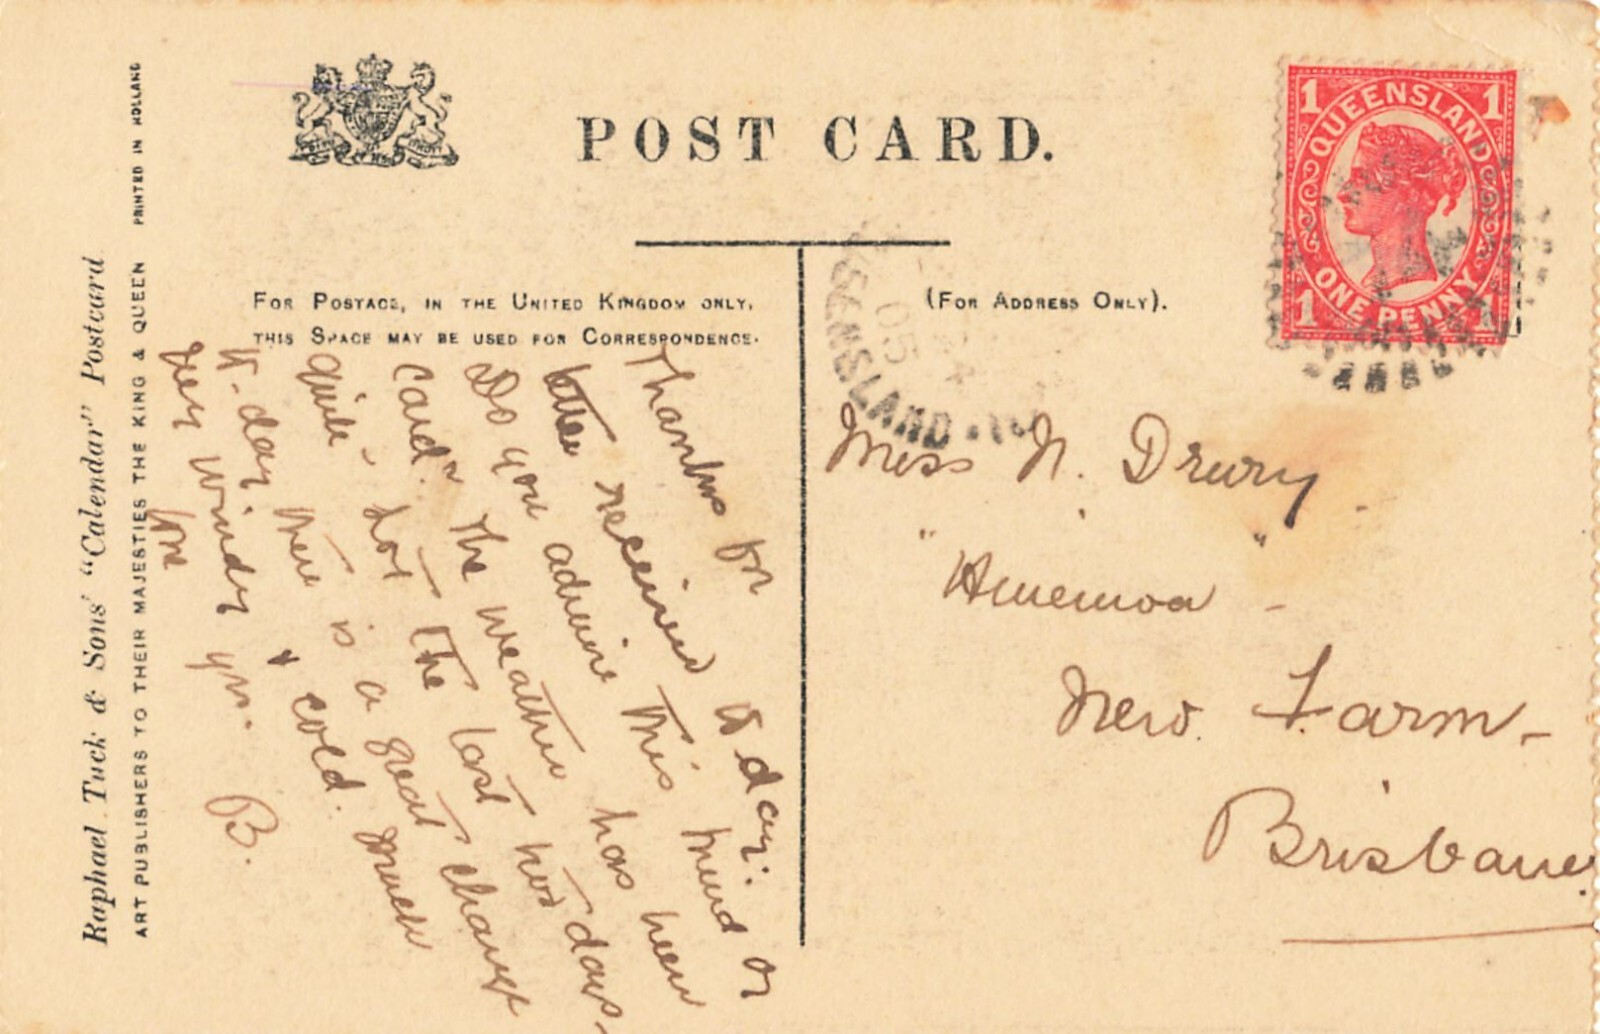 POST CARD.
1 QUEENSLAND 1
1 ONE PENNY 1
FOR POSTAGE, IN THE UNITED KINGDOM ONLY,
THIS SPACE MAY BE USED FOR CORRESPONDENCE.
(FOR ADDRESS ONLY).
Raphael Tuck & Sons' "Calendar" Postcard
ART PUBLISHERS TO THEIR MAJESTIES THE KING & QUEEN PRINTED IN HOLLAND
Thanks for
received to day:
Do you admire this kind or
card. The weather has been
quite hot the last hot days
to-day there is a great change
very windy & cold. much
love
yrs. B.
05
ENSLAND
Miss N. Drury
" "
New Farm-
Brisbane.